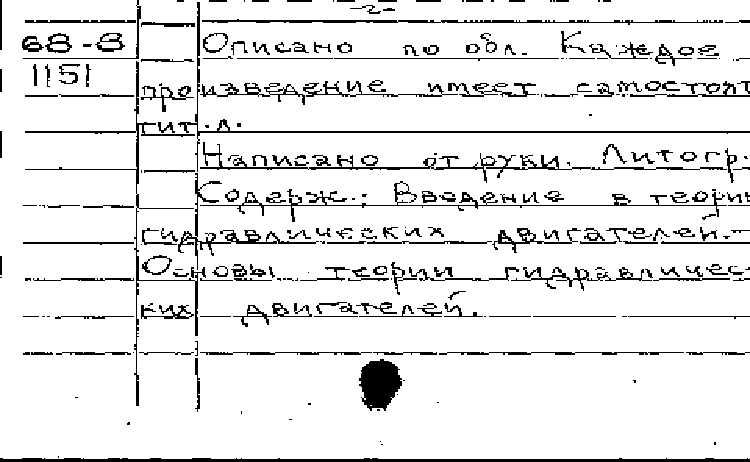 -2-
68-8 Описано по обл. Каждое
1151 произведение имеет самостоят
тит.л.
Написано от руки. Литогр.
Содерж.: Введение в теорию
гидравлических двигателей.-
Основы теории гидравличес
ких двигателей.